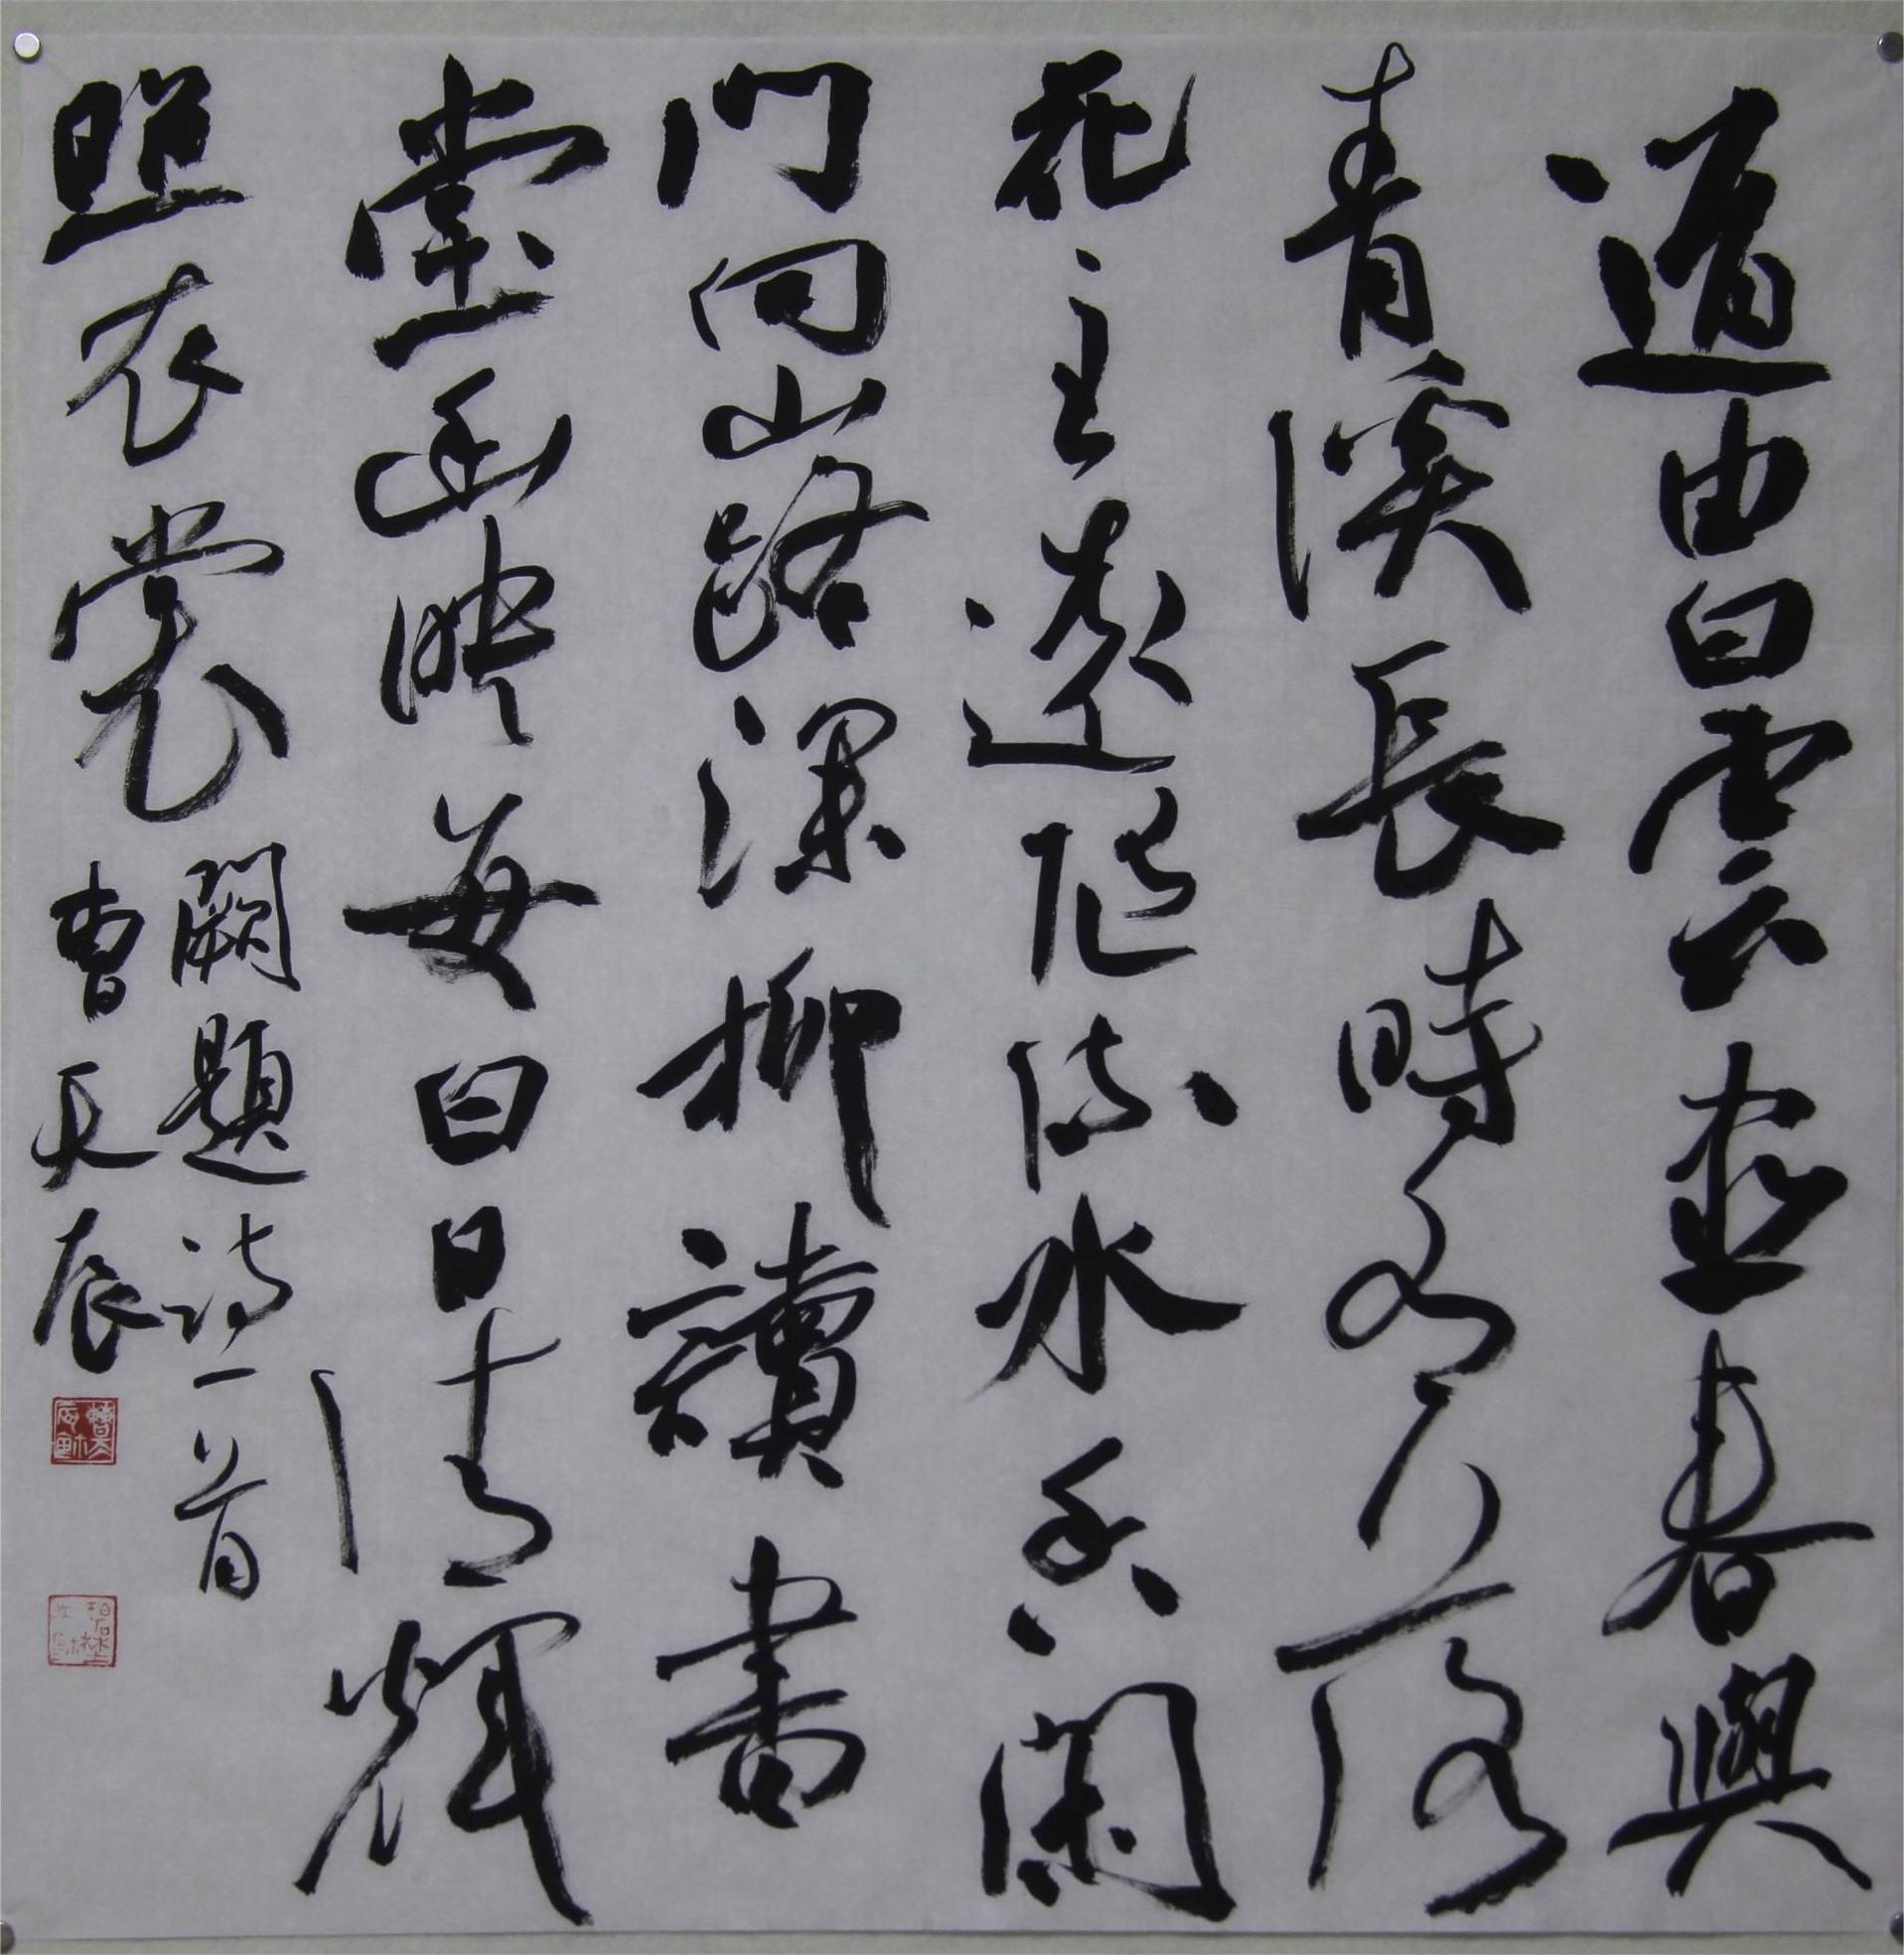 道由白雲盡春與
青溪長時有落
花至遠隨流水香閑
門向山路深柳讀書
堂幽映每白日清輝
照衣裳
闕題詩一首
曹天辰